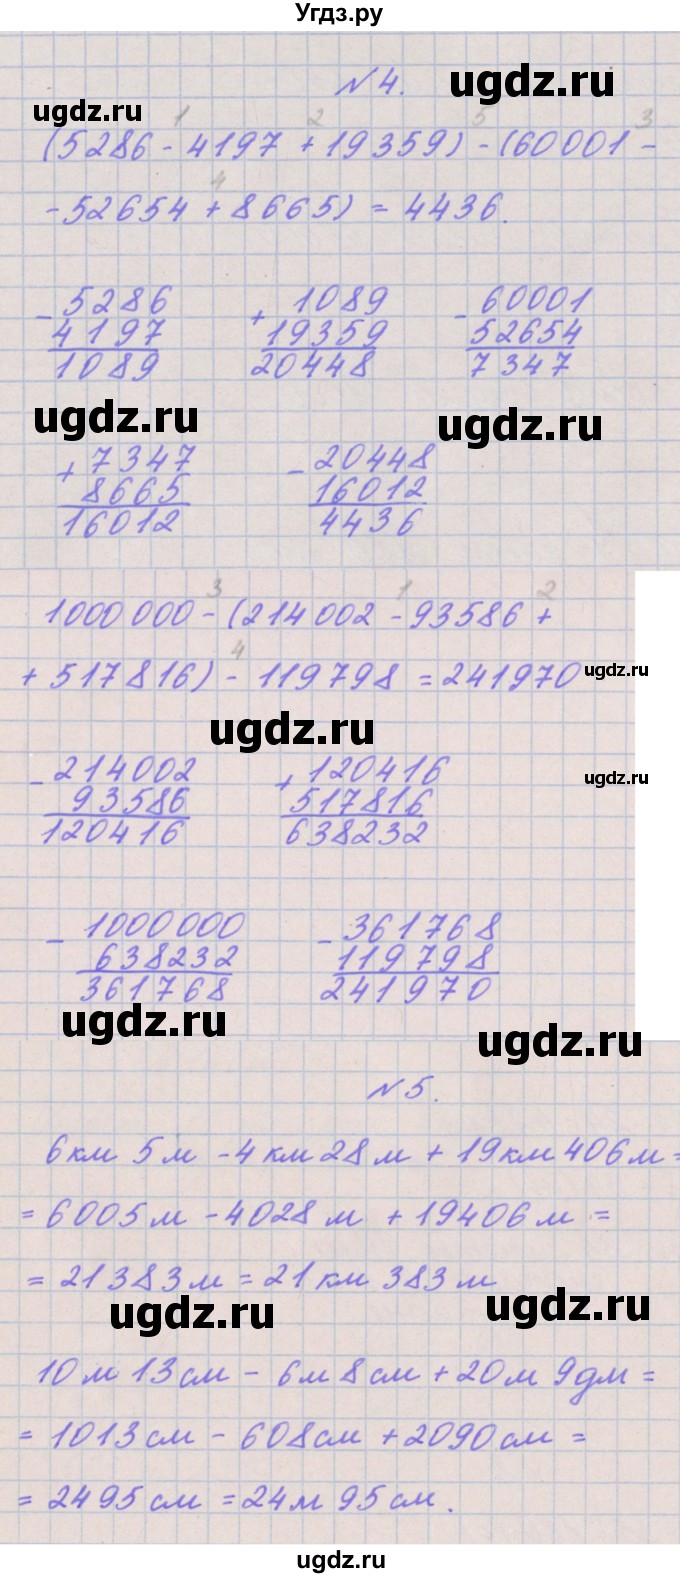 Угдз.ру
N 4.
ugdz.ru
ugdz.ru
1 2 5 3
(5286 - 4197 + 19359) - (60001 -
4
- 52654 + 8665) = 4436.
- 5286
4197
1089
+ 1089
19359
20448
- 60001
52654
7347
ugdz.ru
ugdz.ru
+ 7347
8665
16012
- 20448
16012
4436
3 1 2
1000 000 - (214 002 - 93586 +
4
+ 517 816) - 119 798 = 241970
ugdz.ru
ugdz.ru
ugdz.ru
- 214002
93586
120416
+ 120416
517816
638232
- 1000 000
638232
361768
- 361768
119798
241970
ugdz.ru
ugdz.ru
N 5.
6 км 5 м - 4 км 28 м + 19 км 406 м =
= 6005 м - 4028 м + 19406 м =
= 21383 м = 21 км 383 м
ugdz.ru
ugdz.ru
10 м 13 см - 6 м 8 см + 20 м 9 дм =
= 1013 см - 608 см + 2090 см =
= 2495 см = 24 м 95 см.
ugdz.ru